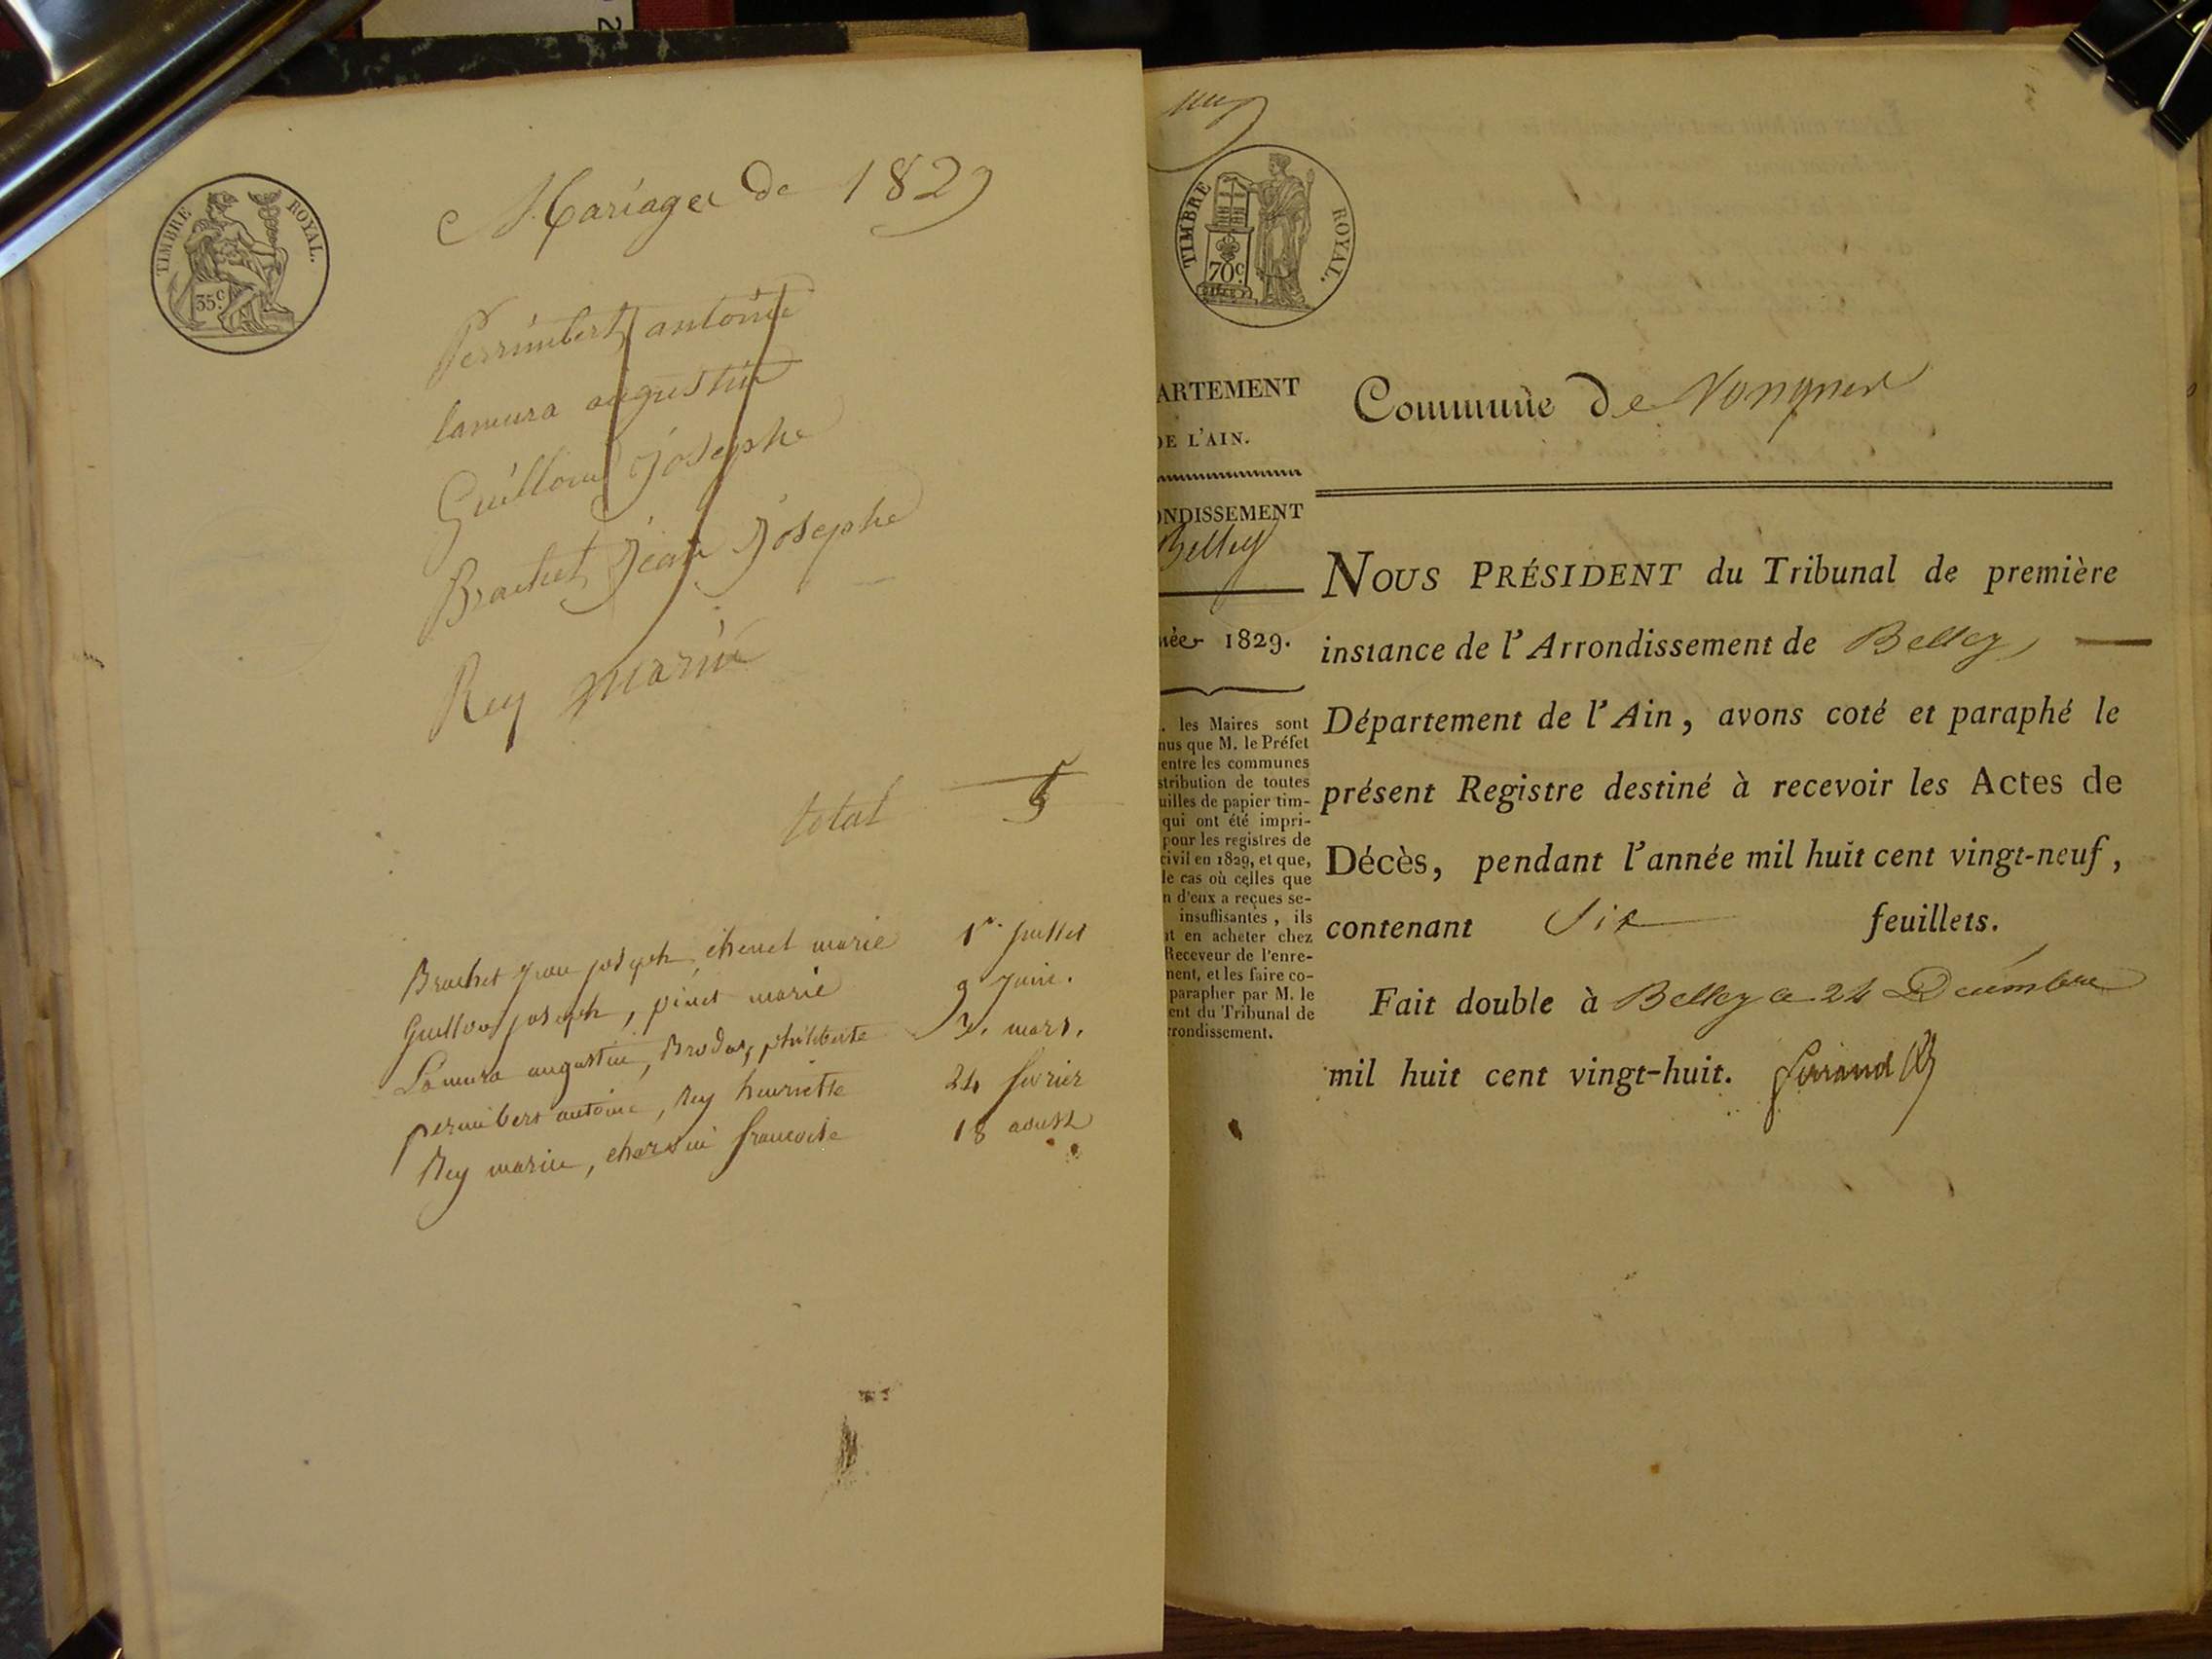 2
TIMBRE ROYAL.
35c.
Mariages de 1829
Perrimbert antoine
lamura augustin
Guilloud Josephe
Brachet Jean Josephe
Rey Marin
total 5
Brachet jean joseph, chenel marie 1er juillet
Guilloud joseph, pinet marie 9 juin.
Lamura augustin, Brodas, philiberte 3. mars.
perrimbert antoine, Rey henriette 24 fevrier
Rey marin, françoise 18 aoust
TIMBRE ROYAL.
70c.
ARTEMENT
DE L'AIN.
ONDISSEMENT
Belley
née 1829.
. les Maires sont
nus que M. le Préfet
entre les communes
stribution de toutes
uilles de papier tim-
qui ont été impri-
pour les registres de
civil en 1829, et que,
le cas où celles que
n d'eux a reçues se-
insuffisantes, ils
nt en acheter chez
Receveur de l'enre-
ment, et les faire co-
parapher par M. le
ent du Tribunal de
rrondissement.
Commune de Vongnes
NOUS PRÉSIDENT du Tribunal de première
instance de l'Arrondissement de Belley
Département de l'Ain, avons coté et paraphé le
présent Registre destiné à recevoir les Actes de
Décès, pendant l'année mil huit cent vingt-neuf,
contenant Six feuillets.
Fait double à Belley ce 24 Decembre
mil huit cent vingt-huit.